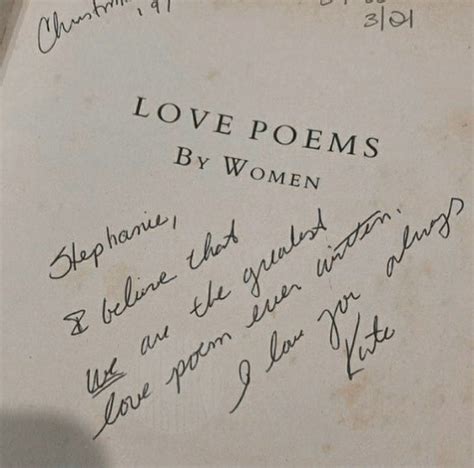 Christm
, 91
3/21
LOVE POEMS
BY WOMEN
Stephanie,
I believe that
we are the greatest
love poem ever written.
I love you always
Kate